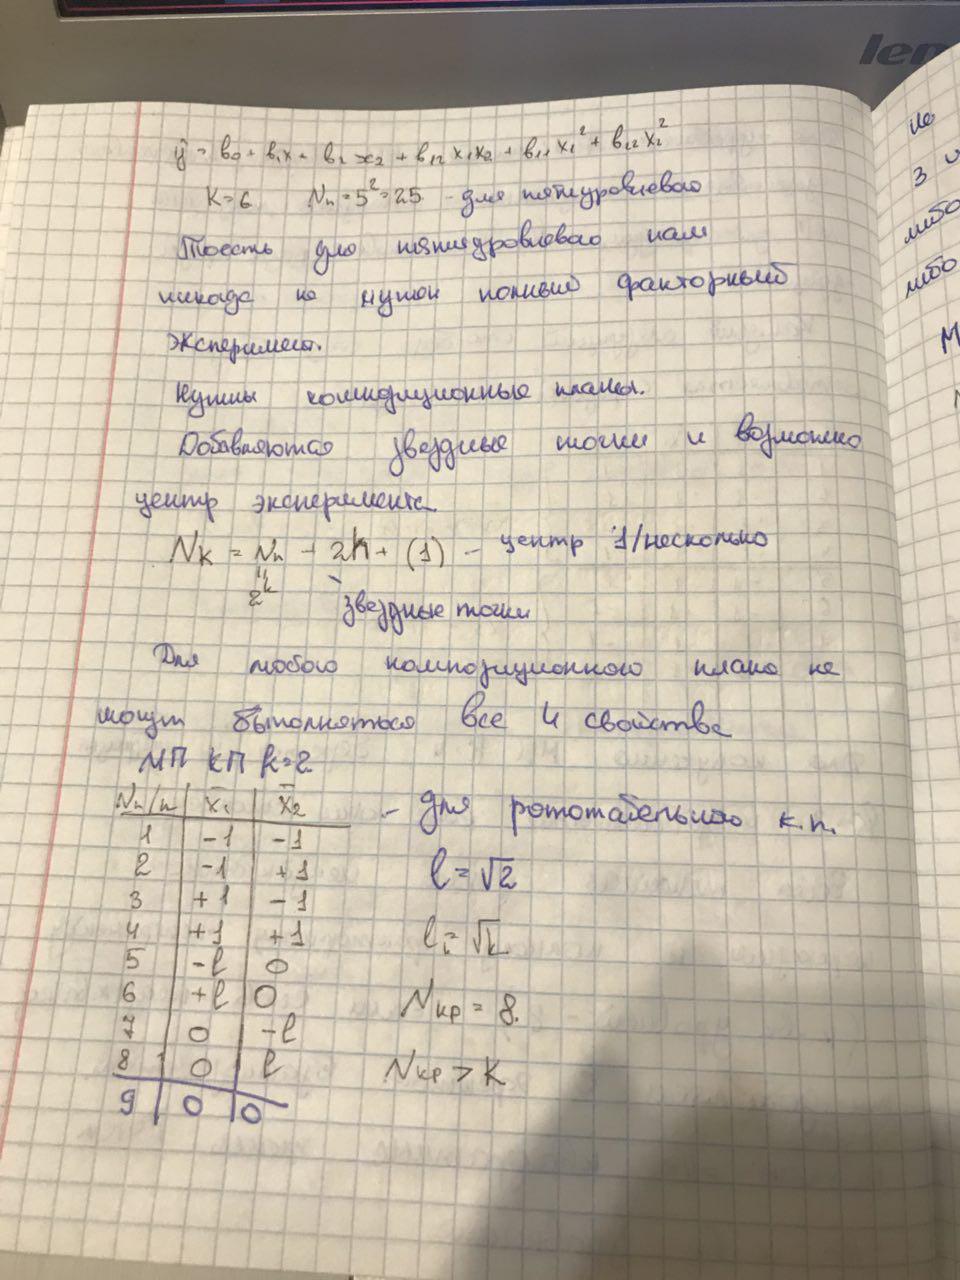 len
ŷ = b₀ + b₁x + b₂x₂ + b₁₂x₁x₂ + b₁₁x₁² + b₂₂x₂²
K=6 Nп = 5² = 25 - для пятиуровневого
Тоесть для пятиуровневого нам
никогда не нужен полный факторный
эксперимент.
Нужны композиционные планы.
Добавляются звездные точки и возможно
центр эксперимента
Nк = Nп + 2k + (1) - центр 1/несколько
2ᵏ звездные точки
Для любого композиционного плана не
могут выполняться все 4 свойства
МП КП k=2
Nп/п x̄₁ x̄₂ - для рототабельного к.п.
1 -1 -1
2 -1 +1 l=√2
3 +1 -1
4 +1 +1 l=√k
5 -l 0
6 +l 0 Nкр = 8.
7 0 -l
8 0 l Nкр > K
9 0 0
не
3
либо
либо
М